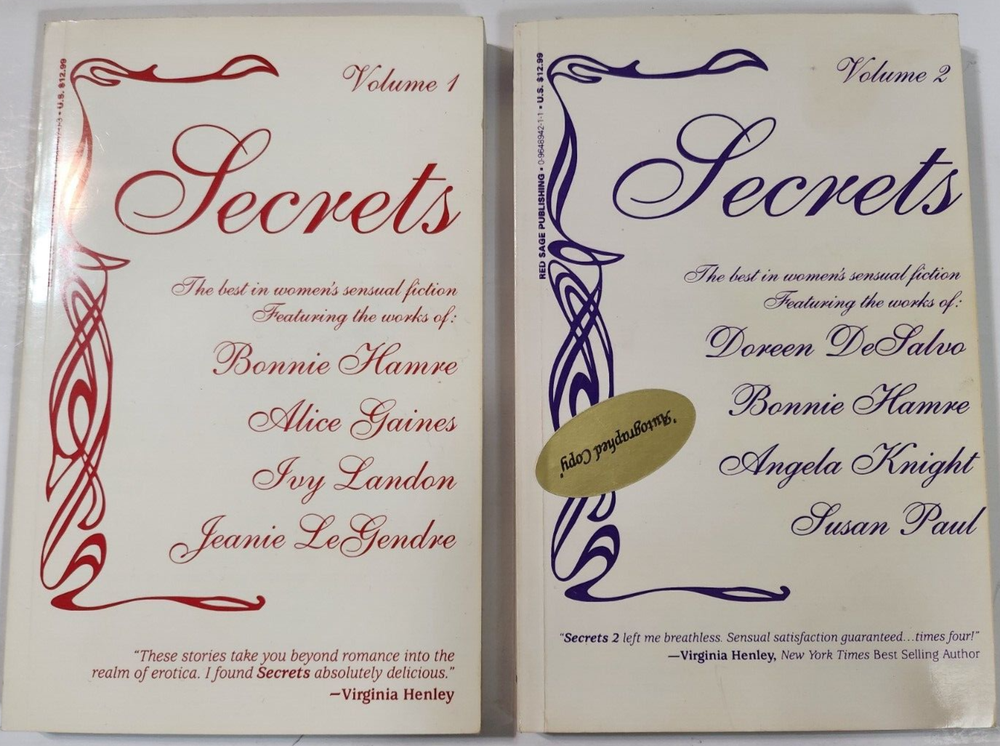 U.S. $12.99
Volume 1
Secrets
The best in women's sensual fiction
Featuring the works of:
Bonnie Hamre
Alice Gaines
Ivy Landon
Jeanie LeGendre
"These stories take you beyond romance into the
realm of erotica. I found Secrets absolutely delicious."
—Virginia Henley
RED SAGE PUBLISHING • 0-9648942-1-1 • U.S. $12.99
Volume 2
Secrets
The best in women's sensual fiction
Featuring the works of:
Doreen DeSalvo
Bonnie Hamre
Angela Knight
Susan Paul
"Autographed Copy"
"Secrets 2 left me breathless. Sensual satisfaction guaranteed...times four!"
—Virginia Henley, New York Times Best Selling Author